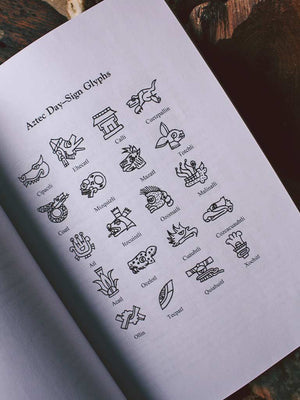 Aztec Day–Sign Glyphs
Cipactli Ehecatl Calli Cuetzpallin
Coatl Miquiztli Mazatl Tochtli
Atl Itzcuintli Ozomatli Malinalli
Acatl Ocelotl Cuauhtli Cozcacuauhtli
Ollin Tecpatl Quiahuitl Xochitl